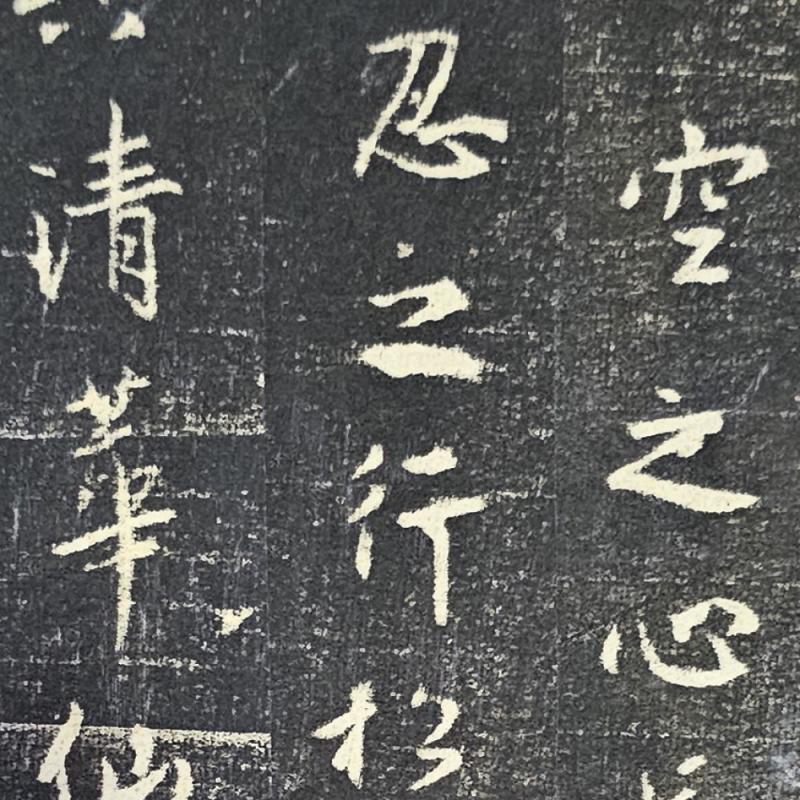 空之心
忍之行松
清華仙